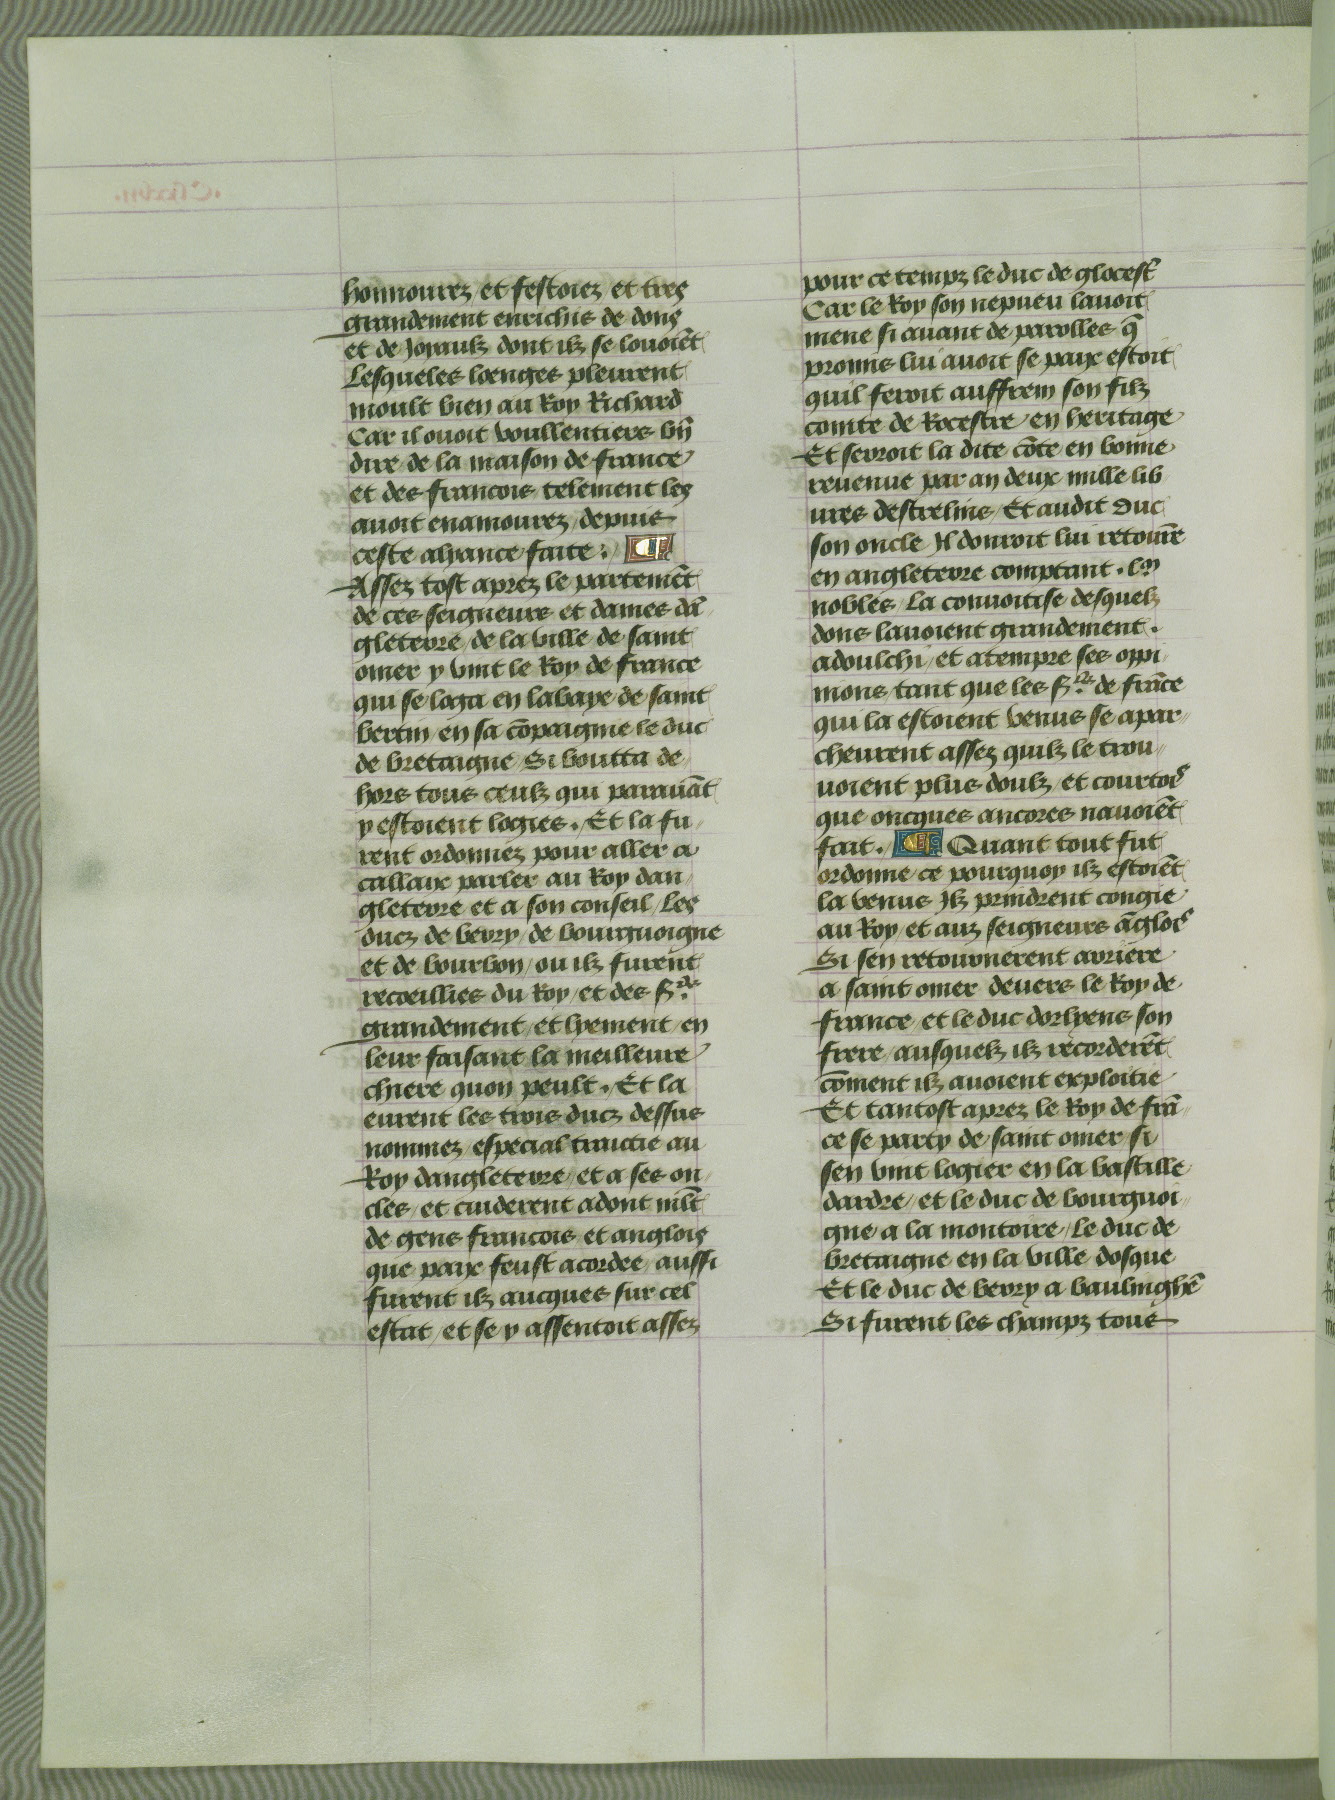 honnourez et festoiez et tres
grandement enrichis de dons
et de Joyaulz dont ilz se louoiēt
Lesqueles loenges pleurent
moult bien au Roy Richard
Car il ouoit voullentiers bn̄
dire de la maison de france
et des francois telement les
auoit enamourez depuis
ceste alyance faite.
Assez tost aprez le partemēt
de ces seigneurs et dames dā
gleterre de la ville de saint
omer y vint le Roy de france
qui se loga en labaye de saint
bertin en sa cōpaignie le duc
de bretaigne Si boutta de
hors tous ceulz qui parauāt
y estoient logies. Et la fu
rent ordonnez pour aller a
callaix parler au Roy dan
gleterre et a son conseil Les
ducz de berry de bourguoigne
et de bourbon ou ilz furent
recoeillies du Roy et des s.rs
grandement et lyement en
leur faisant la meilleure
chiere quon peult. Et la
eurent les trois ducz dessus
nommez especial traictie au
Roy dangleterre et a ses on
cles et cuiderent adont mlt̄
de gens francois et anglois
que paix feust acordee aussi
furent ilz aucques sur cel
estat et se y assentoit assez
pour ce tempz le duc de glocest̄
Car le Roy son nepueu lauoit
mene si auant de parolles q̄
promis lui auoit se paix estoit
quil feroit auffrem son filz
comte de Rocestre en heritage
Et seroit la dite cōte en bonne
reuenue par an deux mille lib
ures destrelins Et audit duc
son oncle Il donroit lui retourē
en angleterre comptant. lm
nobles La conuoitise desquelz
dons lauoient grandement.
adoulchi et atempre ses oppi
nions tant que les s.rs de frāce
qui la estoient venus se apar
cheurent assez quilz le trou
uoient plus doulz et courtois
que oncques ancores nauoiēt
fait. Quant tout fut
ordonne ce pourquoy ilz estoiēt
la venus Ilz prindrent congie
au Roy et aux seigneurs āglois
Si sen retournerent arriere
a saint omer deuers le Roy de
france et le duc dorlyens son
frere ausquelz ilz recorderēt
cōment ilz auoient exploitie
Et tantost aprez le Roy de frā
ce se party de saint omer si
sen vint logier en la bastille
dardre et le duc de bourguoi
gne a la montoire Le duc de
bretaigne en la ville dosque
Et le duc de berry a baulinghē
Si furent les champz tous